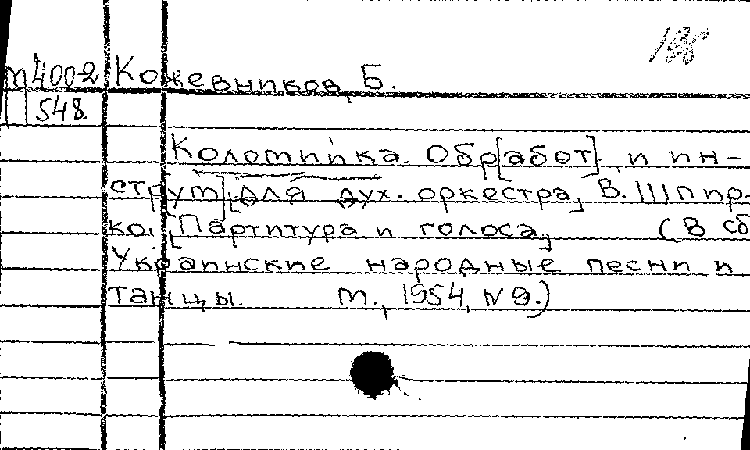 м400-2 Кожевников, Б.
548
Коломийка. Обр[абот]. и ин-
струм[.] для дух. оркестра, В.
ко. [Партитура и голоса] (В сб
Украинские народные песни и
танцы. М., 1954, №9.)